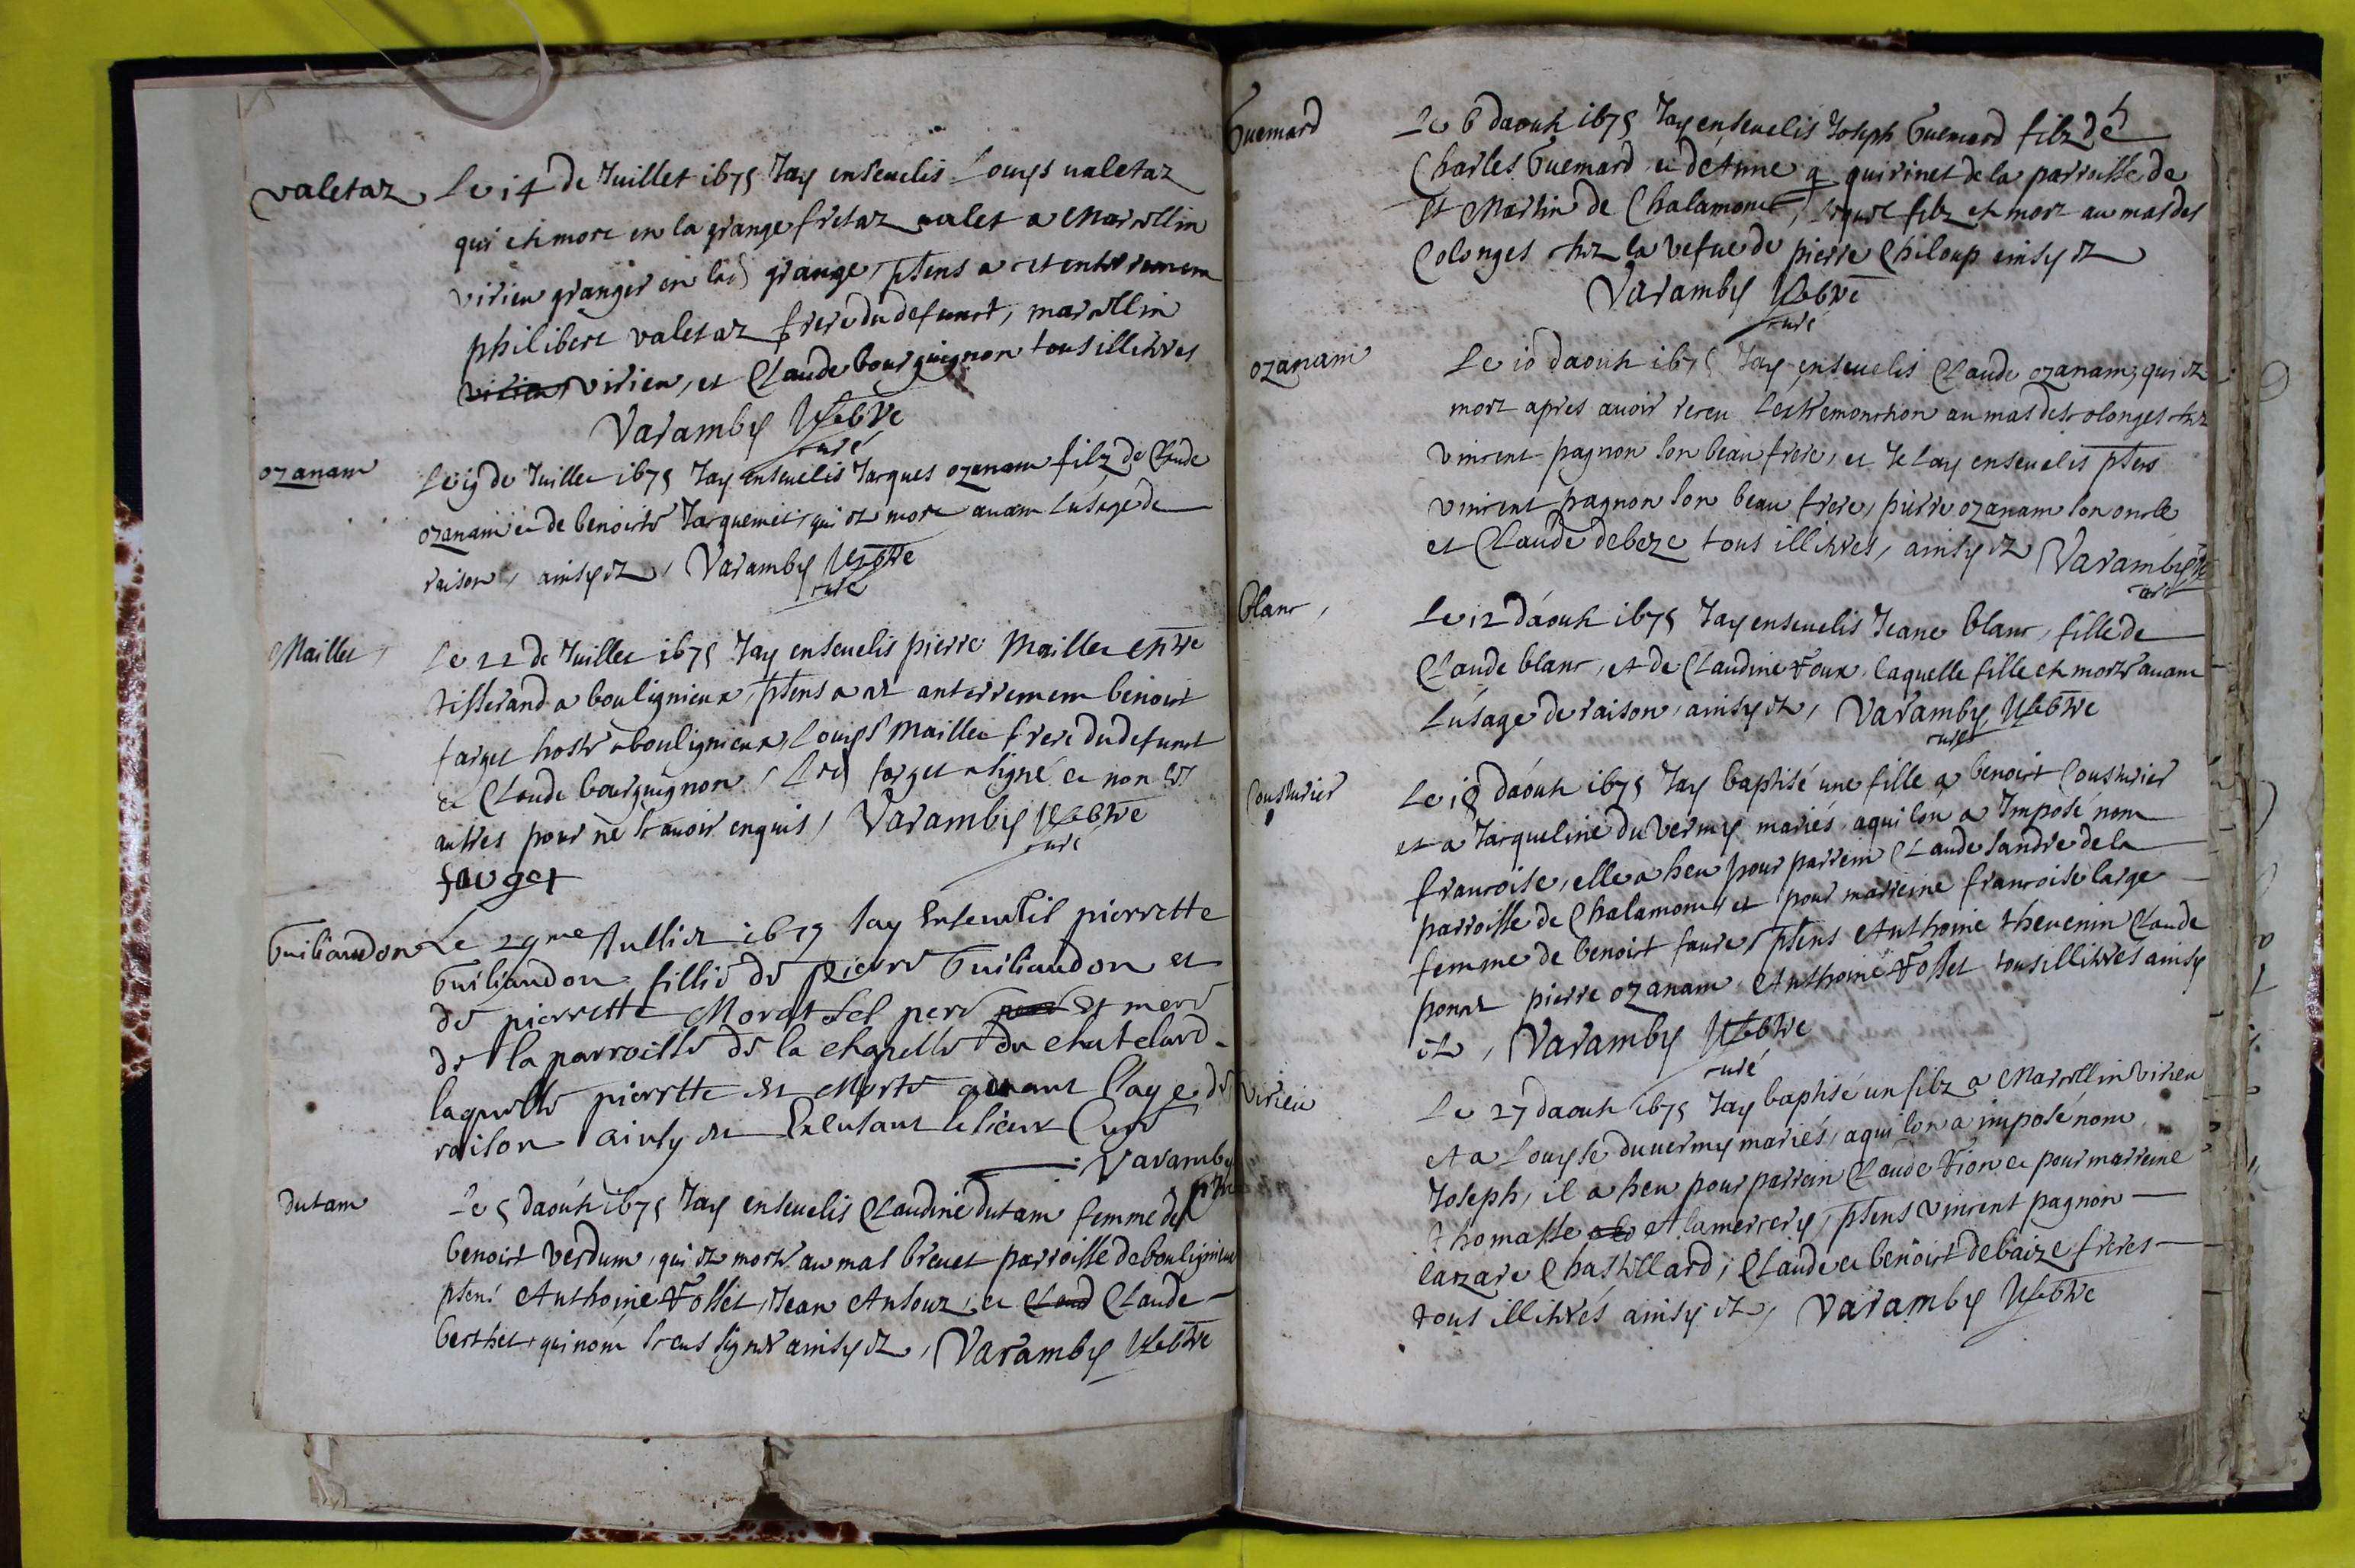 valetaz
Le 14 de Juillet 1675 Jay enseuelis Louys ualetaz
qui est mort en la grange fretaz ualet a Marcellin
virieu granger en lad grange, ptens a cet enterrement
philibert valetaz frere du defunct, marcellin
virieu, et Claude bourguignon tous illitres
Varamby
curé
ozanam
Le 19 de Juillet 1675 Jay enseuelis Jacques ozanam filz de Claude
ozanam et de benoiste Jacquemet, qui est mort auant lusage de
raison, ainsy est, Varamby
curé
Maillet
Le 22 de Juillet 1675 Jay enseuelis pierre Maillet
tisserand a boulignieux, ptens a cet anterrement benoist
farget hoste a boulignieux, Louys Maillet frere du defunct
et Claude bourguignon, led farget a signé et non les
autres pour ne scauoir enquis, Varamby
curé
farget
Guiliaudon
Le 29me Jullier 1675 Jay Enseuelis pierrette
Guiliaudon fillie de pierre Guiliaudon et
de pierrette Morat ses pere et mere
de la parroisse de la chapelle du chatelard
laquelle pierrette est Morte aduant lage de
raison ainsy est En lieux Curé
Varamby
dutam
Le 5 daoust 1675 Jay enseuelis Claudine dutam femme de
benoist verdum, qui est morte au mas breuet parroisse de boulignieux
ptens Anthoine Fosset, Jean et Claude
berthet, qui nont sceus signer ainsy est, Varamby
Guemard
Le 6 daoust 1675 Jay enseuelis Joseph Guemard filz de
Charles Guemard et detiene quirinet de la parroisse de
st Martin de Chalamont, lequel filz est mort au mas des
Colonges chez la vefue de pierre Chiloup ainsy est
Varamby
curé
ozanam
Le 10 daoust 1675 Jay enseuelis Claude ozanam, qui est
mort apres auoir receu lextremonction au mas des colonges chez
vincent pagnon son beau frere, et Je lay enseuelis ptens
vincent pagnon son beau frere, pierre ozanam son oncle
et Claude debeze tous illitres, ainsy est Varamby
curé
blanc,
Le 12 daoust 1675 Jay enseuelis Jeane blanc, fille de
Claude blanc, et de Claudine Foux, laquelle fille est morte auant
lusage de raison, ainsy est, Varamby
curé
Cousturier
Le 18 daoust 1675 Jay baptisé une fille a benoist Cousturier
et a Jacqueline du vermy mariés, aqui lon a Imposé nom
francoise, elle a heu pour parrein Claude sandre de la
parroisse de Chalamont, et pour marreine francoise large
femme de benoist faure, ptens Anthoine theuenin Claude
ponat pierre ozanam Anthoine Fosset tous illitres ainsy
est, Varamby
curé
virieu
Le 27 daoust 1675 Jay baptisé un filz a Marcellin virieu
et a Louyse du uermy mariés, aqui lon a imposé nom
Joseph, il a heu pour parrain Claude et pour marreine
thomasse Alamercery, ptens vincent pagnon
lazare Chastellard, Claude et benoist debaize freres
tous illitrés ainsy est, Varamby